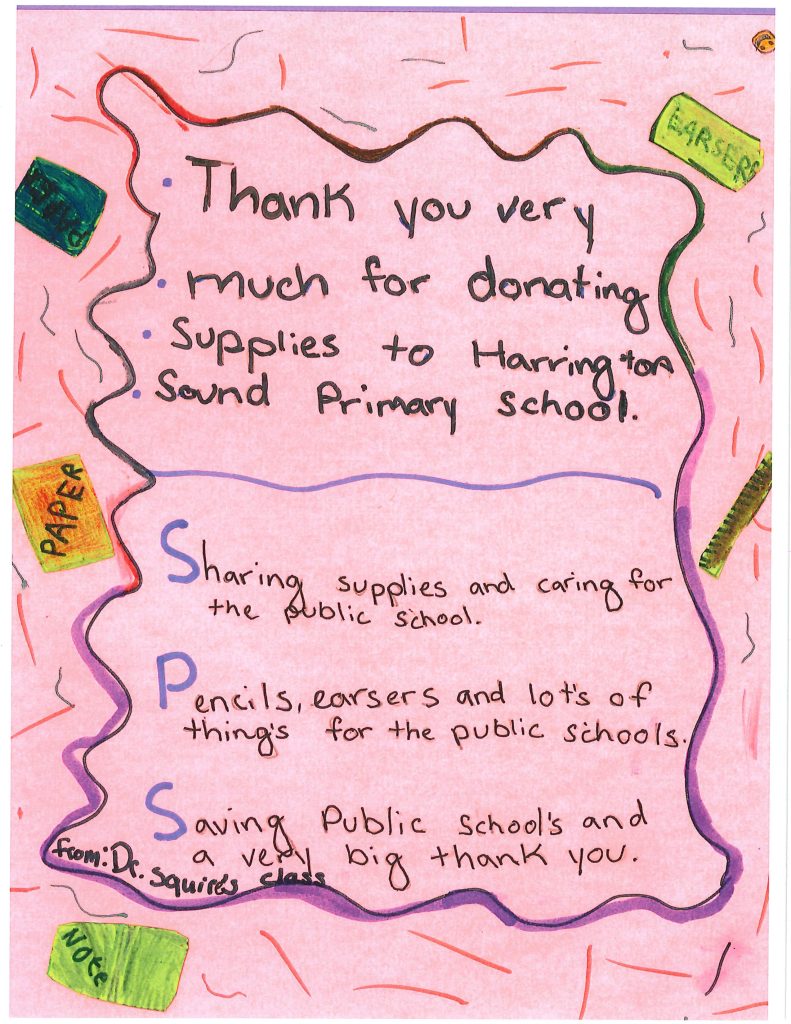 EARSERS
Thank you very
much for donating
Supplies to Harrington
Sound Primary School.
PAPER
Sharing supplies and caring for
the public school.
Pencils, earsers and lot's of
thing's for the public schools.
Saving Public School's and
a very big thank you.
from: Dr.
Squires class
Note